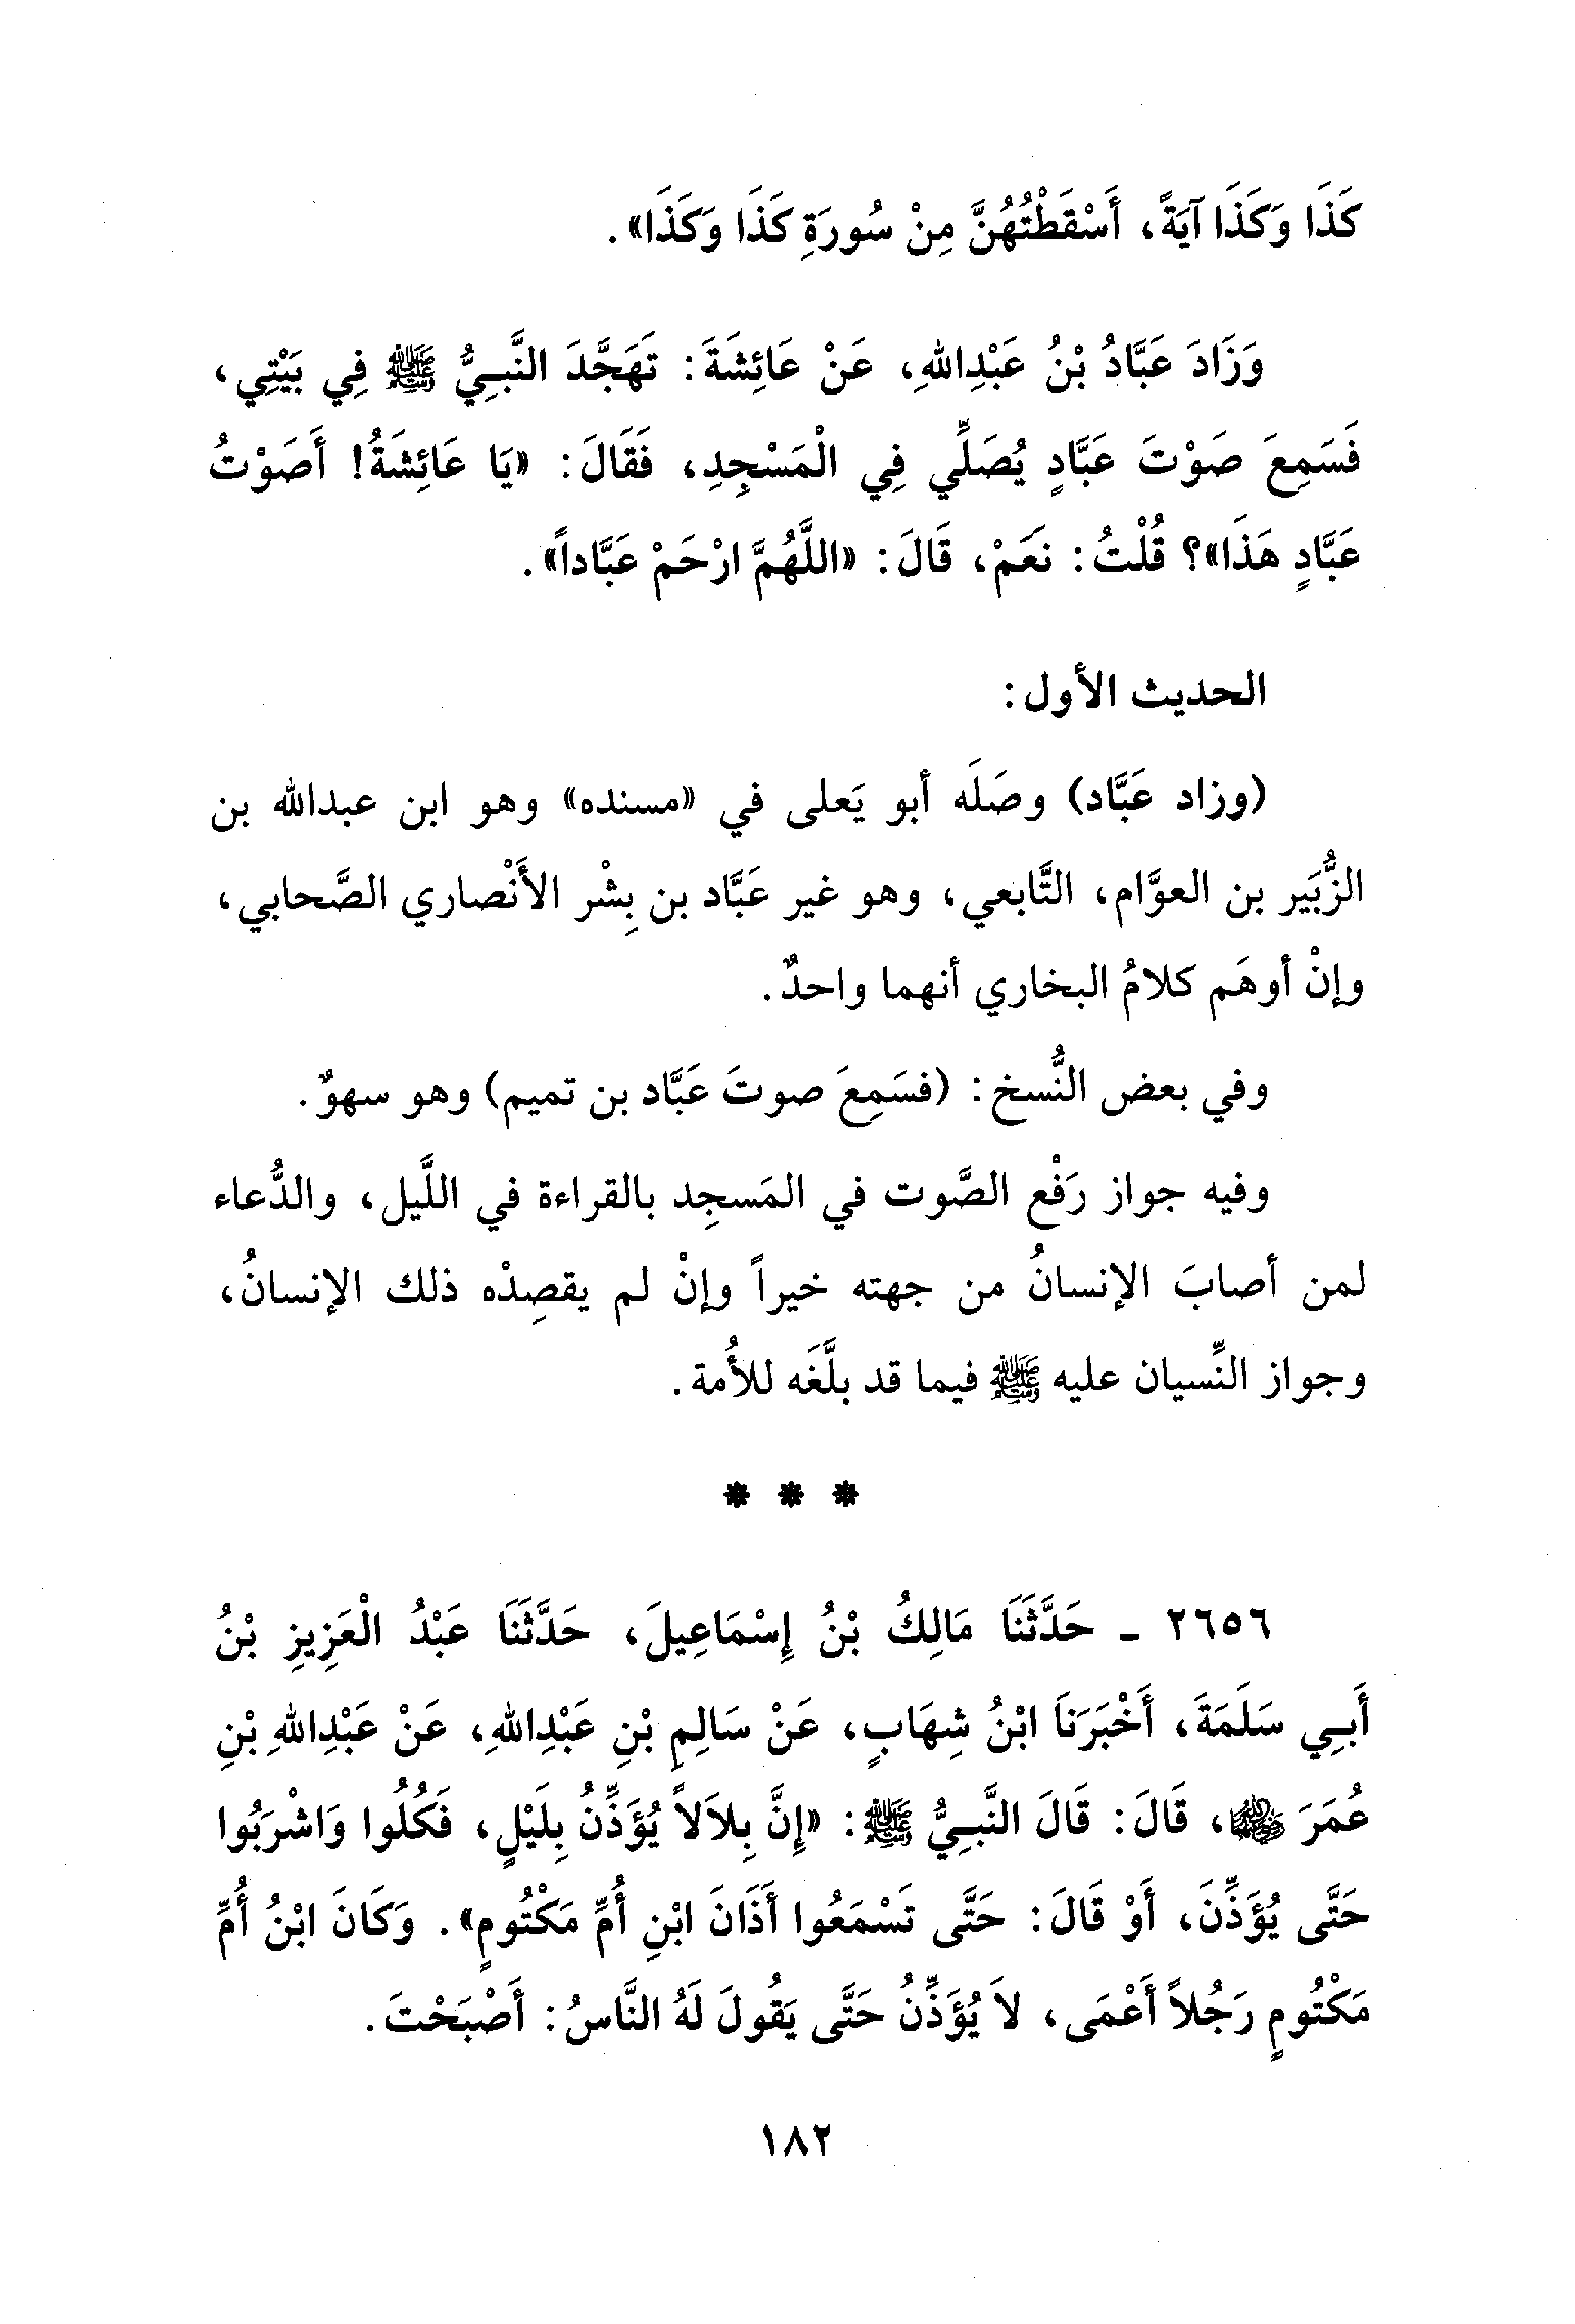 كَذَا وَكَذَا آيَةً، أَسْقَطْتُهُنَّ مِنْ سُورَةِ كَذَا وَكَذَا».
وَزَادَ عَبَّادُ بْنُ عَبْدِاللهِ، عَنْ عَائِشَةَ: تَهَجَّدَ النَّبِيُّ ﷺ فِي بَيْتِي،
فَسَمِعَ صَوْتَ عَبَّادٍ يُصَلِّي فِي الْمَسْجِدِ، فَقَالَ: «يَا عَائِشَةُ! أَصَوْتُ
عَبَّادٍ هَذَا»؟ قُلْتُ: نَعَمْ، قَالَ: «اللَّهُمَّ ارْحَمْ عَبَّاداً».
الحديث الأول:
(وزاد عَبَّاد) وصَلَه أبو يَعلى في «مسنده» وهو ابن عبدالله بن
الزُّبَير بن العوَّام، التَّابعي، وهو غير عَبَّاد بن بِشْر الأَنْصاري الصَّحابي،
وإنْ أوهَم كلامُ البخاري أنهما واحدٌ.
وفي بعض النُّسخ: (فسَمِعَ صوتَ عَبَّاد بن تميم) وهو سهوٌ.
وفيه جواز رَفْع الصَّوت في المَسجِد بالقراءة في اللَّيل، والدُّعاء
لمن أصابَ الإنسانُ من جهته خيراً وإنْ لم يقصِدْه ذلك الإنسانُ،
وجواز النِّسيان عليه ﷺ فيما قد بلَّغَه للأُمة.
* * *
٢٦٥٦ - حَدَّثَنَا مَالِكُ بْنُ إِسْمَاعِيلَ، حَدَّثَنَا عَبْدُ الْعَزِيزِ بْنُ
أَبِي سَلَمَةَ، أَخْبَرَنَا ابْنُ شِهَابٍ، عَنْ سَالِمِ بْنِ عَبْدِاللهِ، عَنْ عَبْدِاللهِ بْنِ
عُمَرَ ﵁، قَالَ: قَالَ النَّبِيُّ ﷺ: «إِنَّ بِلاَلاً يُؤَذِّنُ بِلَيْلٍ، فَكُلُوا وَاشْرَبُوا
حَتَّى يُؤَذِّنَ، أَوْ قَالَ: حَتَّى تَسْمَعُوا أَذَانَ ابْنِ أُمِّ مَكْتُومٍ». وَكَانَ ابْنُ أُمِّ
مَكْتُومٍ رَجُلاً أَعْمَى، لاَ يُؤَذِّنُ حَتَّى يَقُولَ لَهُ النَّاسُ: أَصْبَحْتَ.
١٨٢